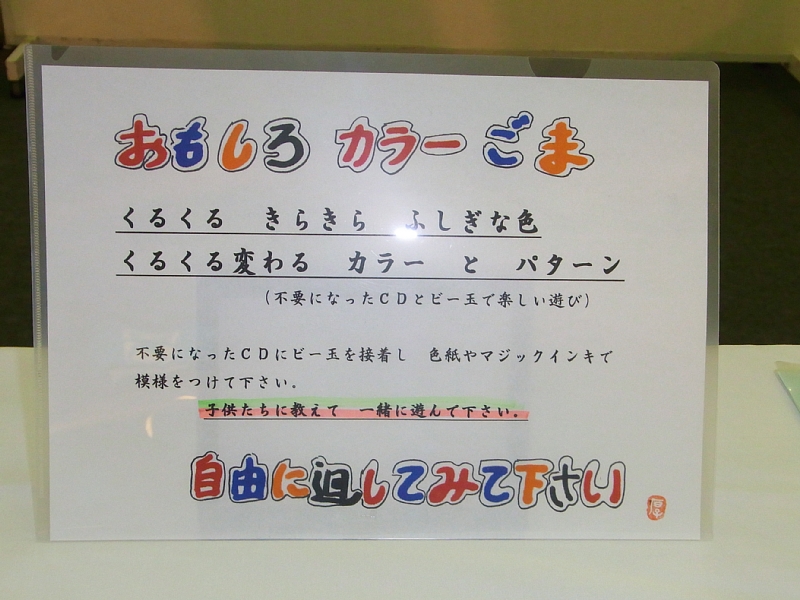 おもしろ カラー ごま
くるくる　きらきら　ふしぎな色
くるくる変わる　カラー　と　パターン
（不要になったＣＤとビー玉で楽しい遊び）
不要になったＣＤにビー玉を接着し　色紙やマジックインキで
模様をつけて下さい。
子供たちに教えて　一緒に遊んで下さい。
自由に廻してみて下さい
厚